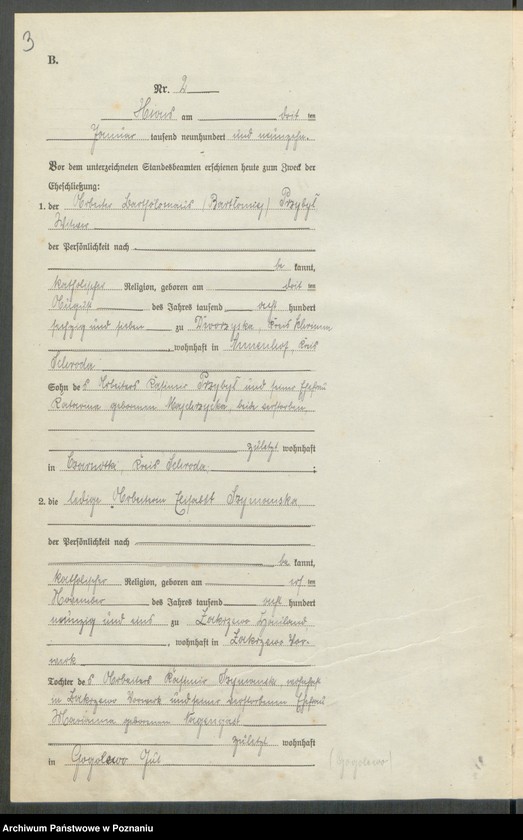 3
B.
Nr. 2
am drit ten
Januar tausend neunhundert und neunzehn.
Vor dem unterzeichneten Standesbeamten erschienen heute zum Zweck der
Eheschließung:
1. der Arbeiter Bartholomäus (Bartłomiej) Przybył
Witwer
der Persönlichkeit nach
be kannt,
katholischer Religion, geboren am
August des Jahres tausend acht hundert
sechzig und sieben zu Dworzyska, Kreis
, wohnhaft in Annenhof, Kreis
Schroda
Sohn des Arbeiters Kasimir Przybył und seiner Ehefrau
Katarina geborenen beide verstorben,
zuletzt wohnhaft
in Czarnotki, Kreis Schroda ;
2. die ledige Arbeiterin Elisabet Szymanska,
der Persönlichkeit nach
be kannt,
katholischer Religion, geboren am elf ten
November des Jahres tausend acht hundert
neunzig und eins zu Zakrzewo Hauland
, wohnhaft in Zakrzewo Vor-
werk
Tochter des Arbeiters Kasimir Szymanski, wohnhaft
in Zakrzewo Vorwerk und seiner verstorbenen Ehefrau
Marianna geborenen
zuletzt wohnhaft
in Gogolewo Gut
(Gogolewo)
Archiwum Państwowe w Poznaniu